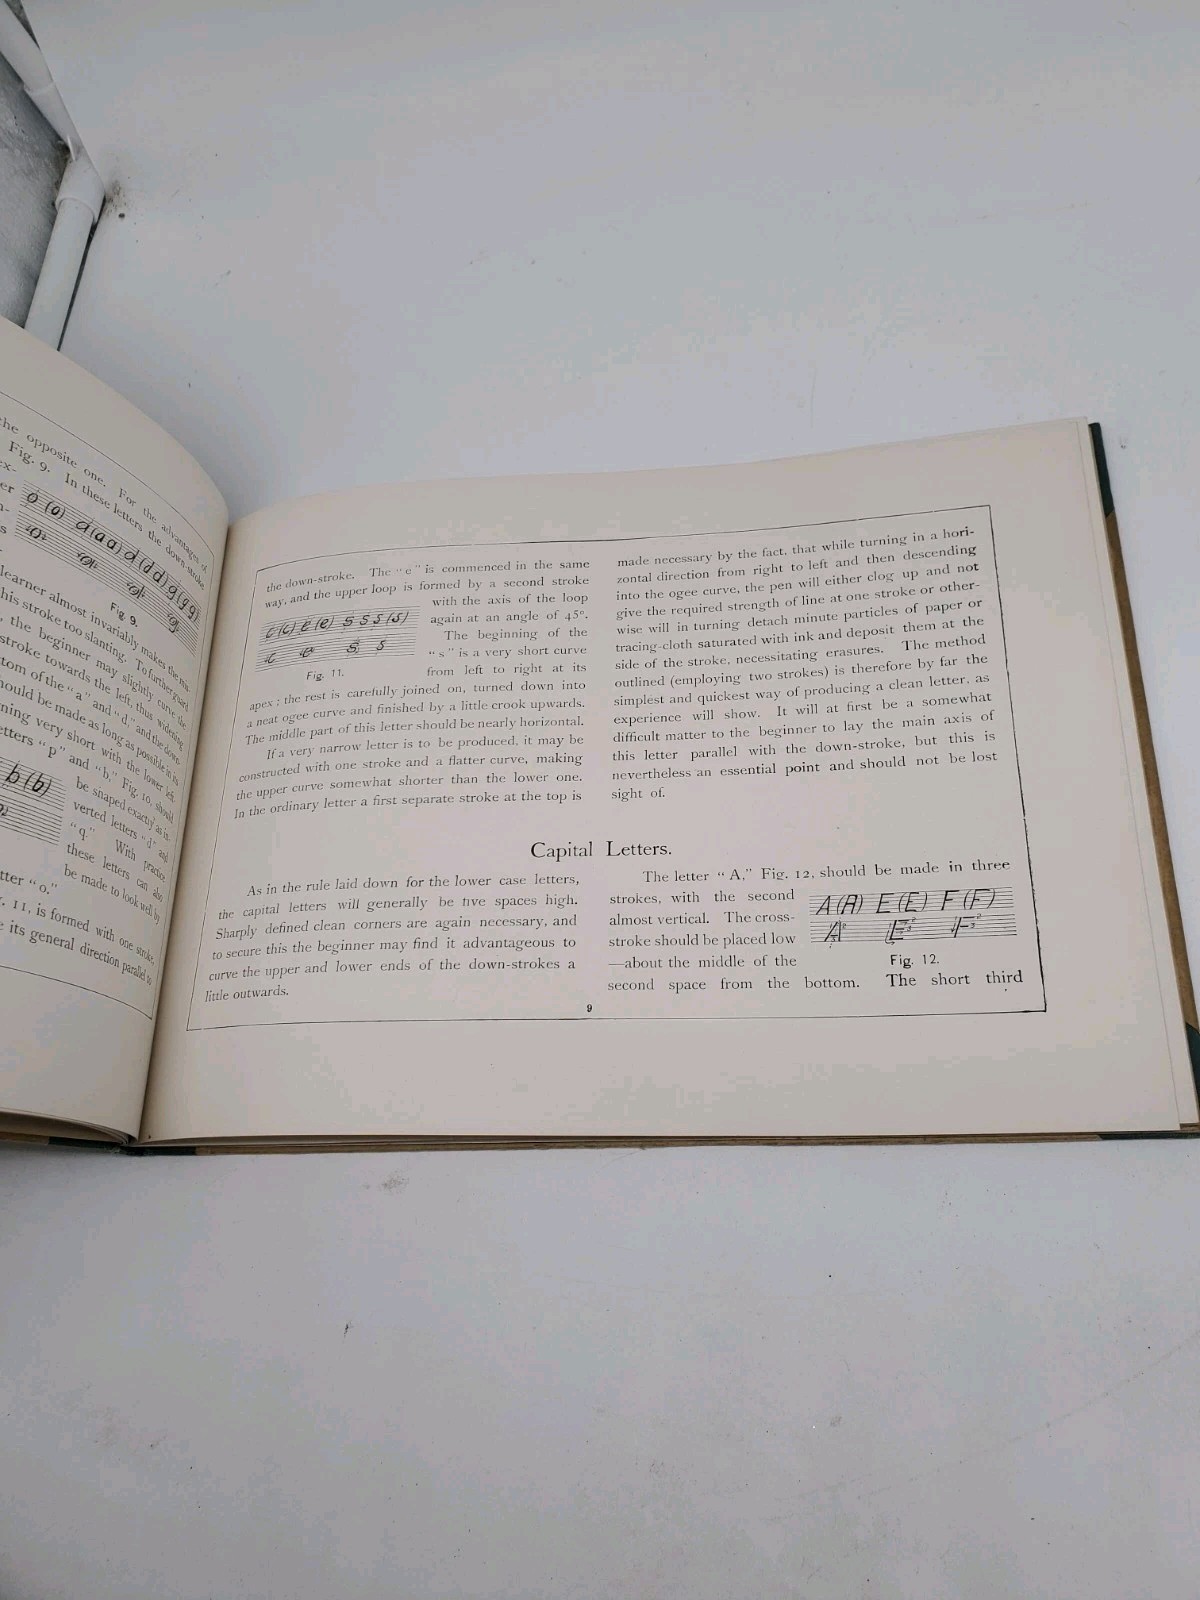 the opposite one. For the advantages of
Fig. 9. In these letters the down-stroke
o (o) a (a a) d (d d) g (g g)
Fig 9.
learner almost invariably makes the
his stroke too slanting. To further guard
the beginner may slightly curve the
stroke towards the left, thus widening
tom of the "a" and "d," and the down-
hould be made as long as possible in its
ning very short with the lower left.
etters "p" and "b," Fig. 10, should
b (b)
be shaped exactly as in-
verted letters "d" and
"q." With practice
these letters can also
be made to look well by
tter "o."
11, is formed with one stroke,
its general direction parallel to
the down-stroke. The "e" is commenced in the same
way, and the upper loop is formed by a second stroke
with the axis of the loop
again at an angle of 45°.
The beginning of the
"s" is a very short curve
from left to right at its
c (c) e (e) s s s (s)
c e s s
Fig. 11.
apex; the rest is carefully joined on, turned down into
a neat ogee curve and finished by a little crook upwards.
The middle part of this letter should be nearly horizontal.
If a very narrow letter is to be produced, it may be
constructed with one stroke and a flatter curve, making
the upper curve somewhat shorter than the lower one.
In the ordinary letter a first separate stroke at the top is
made necessary by the fact, that while turning in a hori-
zontal direction from right to left and then descending
into the ogee curve, the pen will either clog up and not
give the required strength of line at one stroke or other-
wise will in turning detach minute particles of paper or
tracing-cloth saturated with ink and deposit them at the
side of the stroke, necessitating erasures. The method
outlined (employing two strokes) is therefore by far the
simplest and quickest way of producing a clean letter, as
experience will show. It will at first be a somewhat
difficult matter to the beginner to lay the main axis of
this letter parallel with the down-stroke, but this is
nevertheless an essential point and should not be lost
sight of.
Capital Letters.
As in the rule laid down for the lower case letters,
the capital letters will generally be five spaces high.
Sharply defined clean corners are again necessary, and
to secure this the beginner may find it advantageous to
curve the upper and lower ends of the down-strokes a
little outwards.
The letter "A," Fig. 12, should be made in three
strokes, with the second
almost vertical. The cross-
stroke should be placed low
—about the middle of the
second space from the bottom. The short third
A (A) E (E) F (F)
Fig. 12.
9